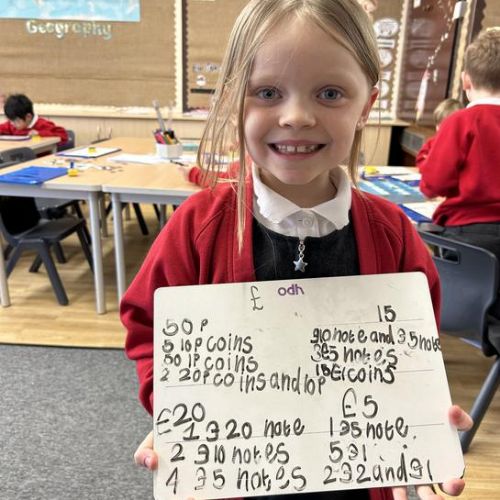 Geography
£ odh
50P
5 10P coins
50 1P coins
2 20P coins and 10P
15
£10 note and 3 5 note
3£5 notes
15£1 coins
£20
1 £20 note
2 £10 notes
4 £5 notes
£5
1 £5 note.
5£1.
2£2 and £1